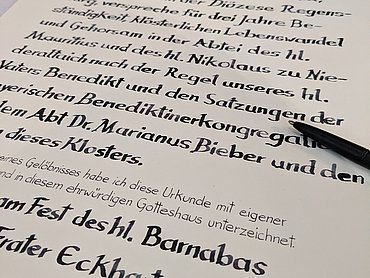 der Diözese Regens-
burg, verspreche für drei Jahre Be-
ständigkeit, klösterlichen Lebenswandel
und Gehorsam in der Abtei des hl.
Mauritius und des hl. Nikolaus zu Nie-
deraltaich nach der Regel unseres hl.
Vaters Benedikt und den Satzungen der
yerischen Benediktinerkongregatio
dem Abt Dr. Marianus Bieber und den
n dieses Klosters.
eines Gelöbnisses habe ich diese Urkunde mit eigener
und in diesem ehrwürdigen Gotteshaus unterzeichnet.
am Fest des hl. Barnabas
Frater Eckha